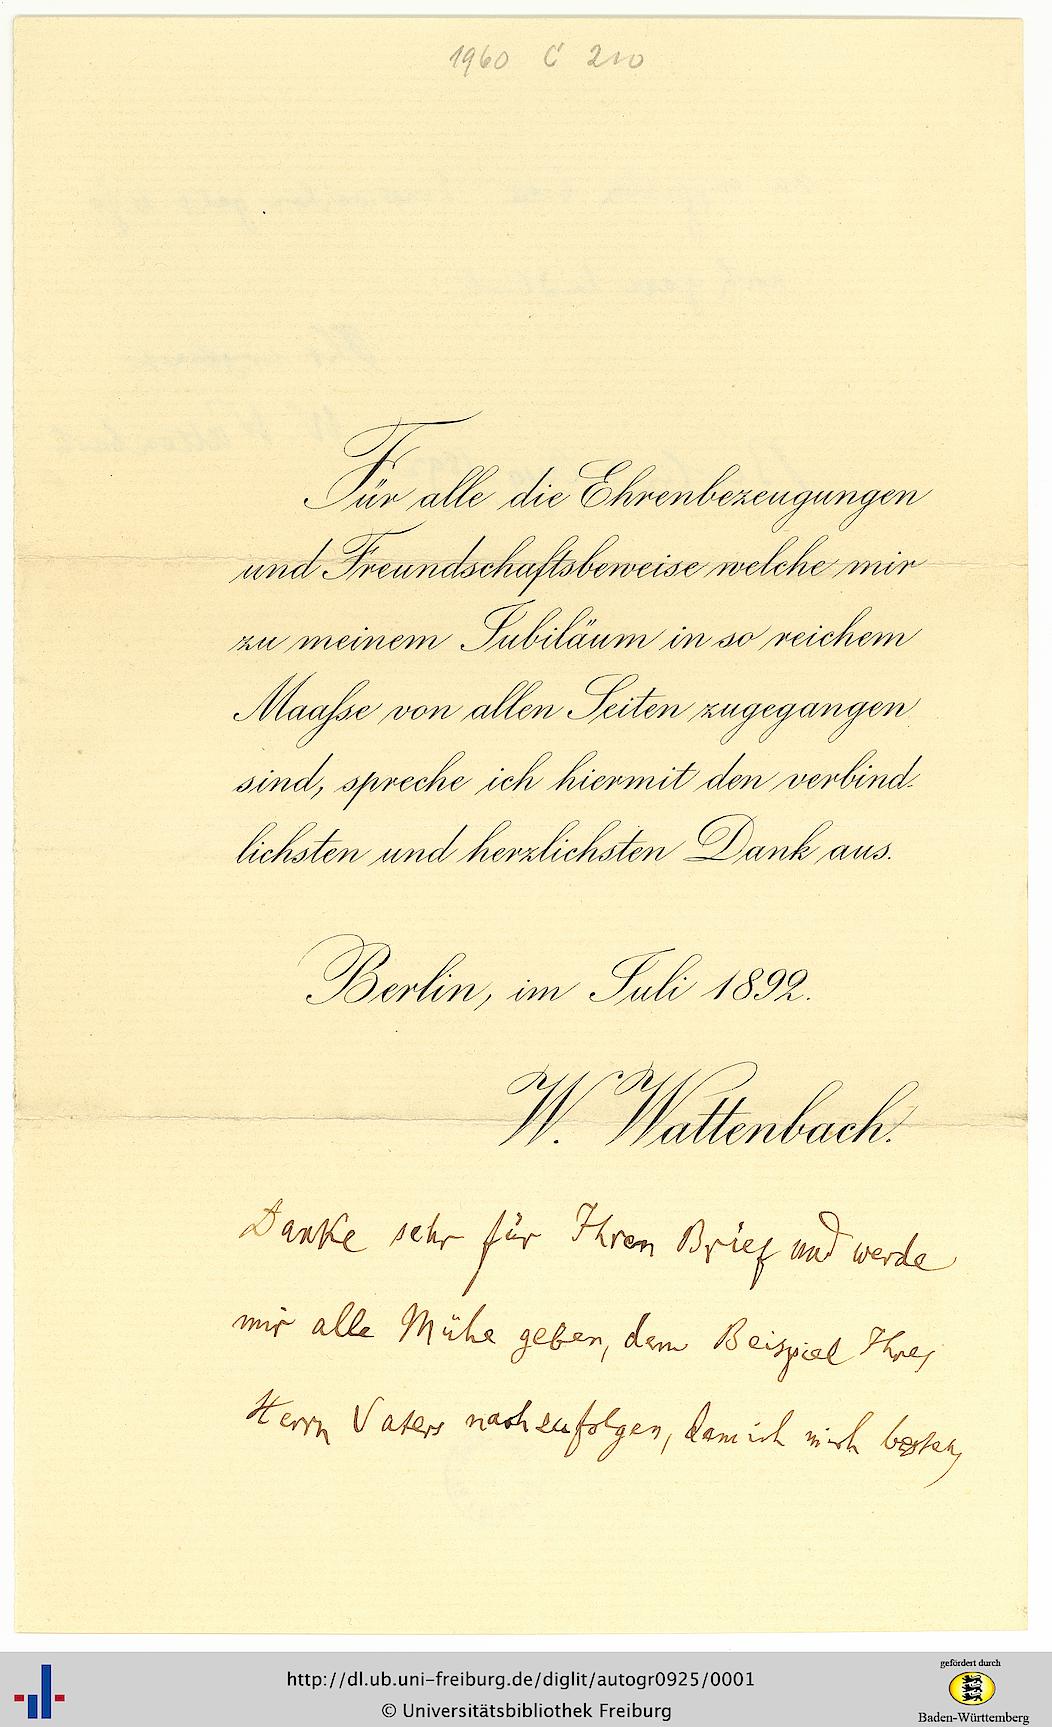 1960 C 210
Für alle die Ehrenbezeugungen
und Freundschaftsbeweise welche mir
zu meinem Jubiläum in so reichem
Maaſse von allen Seiten zugegangen
sind, spreche ich hiermit den verbind-
lichsten und herzlichsten Dank aus.
Berlin, im Juli 1892.
W. Wattenbach.
Danke sehr für Ihren Brief und werde
mir alle Mühe geben, dem Beispiel Ihres
Herrn Vaters nachzufolgen, dem ich mich bestens
http://dl.ub.uni-freiburg.de/diglit/autogr0925/0001
© Universitätsbibliothek Freiburg
gefördert durch
Baden-Württemberg